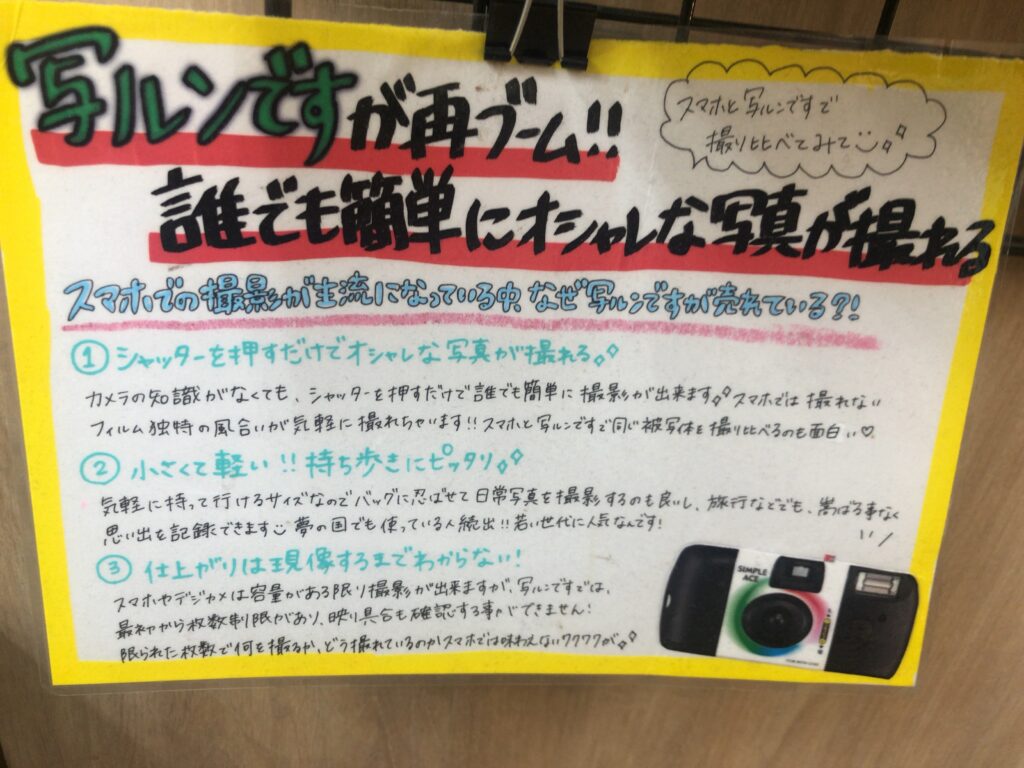 写ルンですが再ブーム!!
スマホと写ルンですで
撮り比べてみて
誰でも簡単にオシャレな写真が撮れる
スマホでの撮影が主流になっている中、なぜ写ルンですが売れている?!
① シャッターを押すだけでオシャレな写真が撮れる。
カメラの知識がなくても、シャッターを押すだけで誰でも簡単に撮影が出来ます。スマホでは撮れない
フィルム独特の風合いが気軽に撮れちゃいます!!スマホと写ルンですで同じ被写体を撮り比べるのも面白い♡
② 小さくて軽い!!持ち歩きにピッタリ。
気軽に持って行けるサイズなのでバッグに忍ばせて日常写真を撮影するのも良いし、旅行などでも、嵩ばる事なく
思い出を記録できます 夢の国でも使っている人続出!!若い世代に人気なんです!
③ 仕上がりは現像するまでわからない!
スマホやデジカメは容量がある限り撮影が出来ますが、写ルンですでは、
最初から枚数制限があり、映り具合も確認する事ができません!
限られた枚数で何を撮るか、どう撮れているのかスマホでは味わえないワクワクが。
SIMPLE
ACE